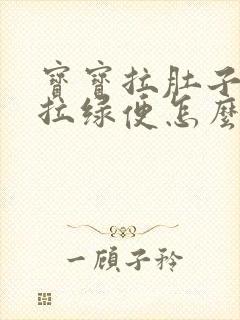 寶寶拉肚子
拉绿便怎麼
一顧子衿